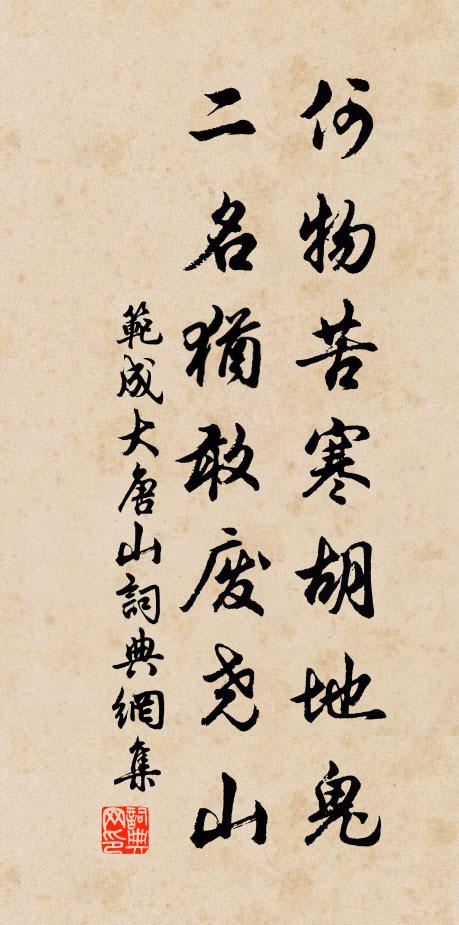 何物苦寒胡地鬼
二名猶敢废尧山
範成大唐山詞典網集
詞典网印